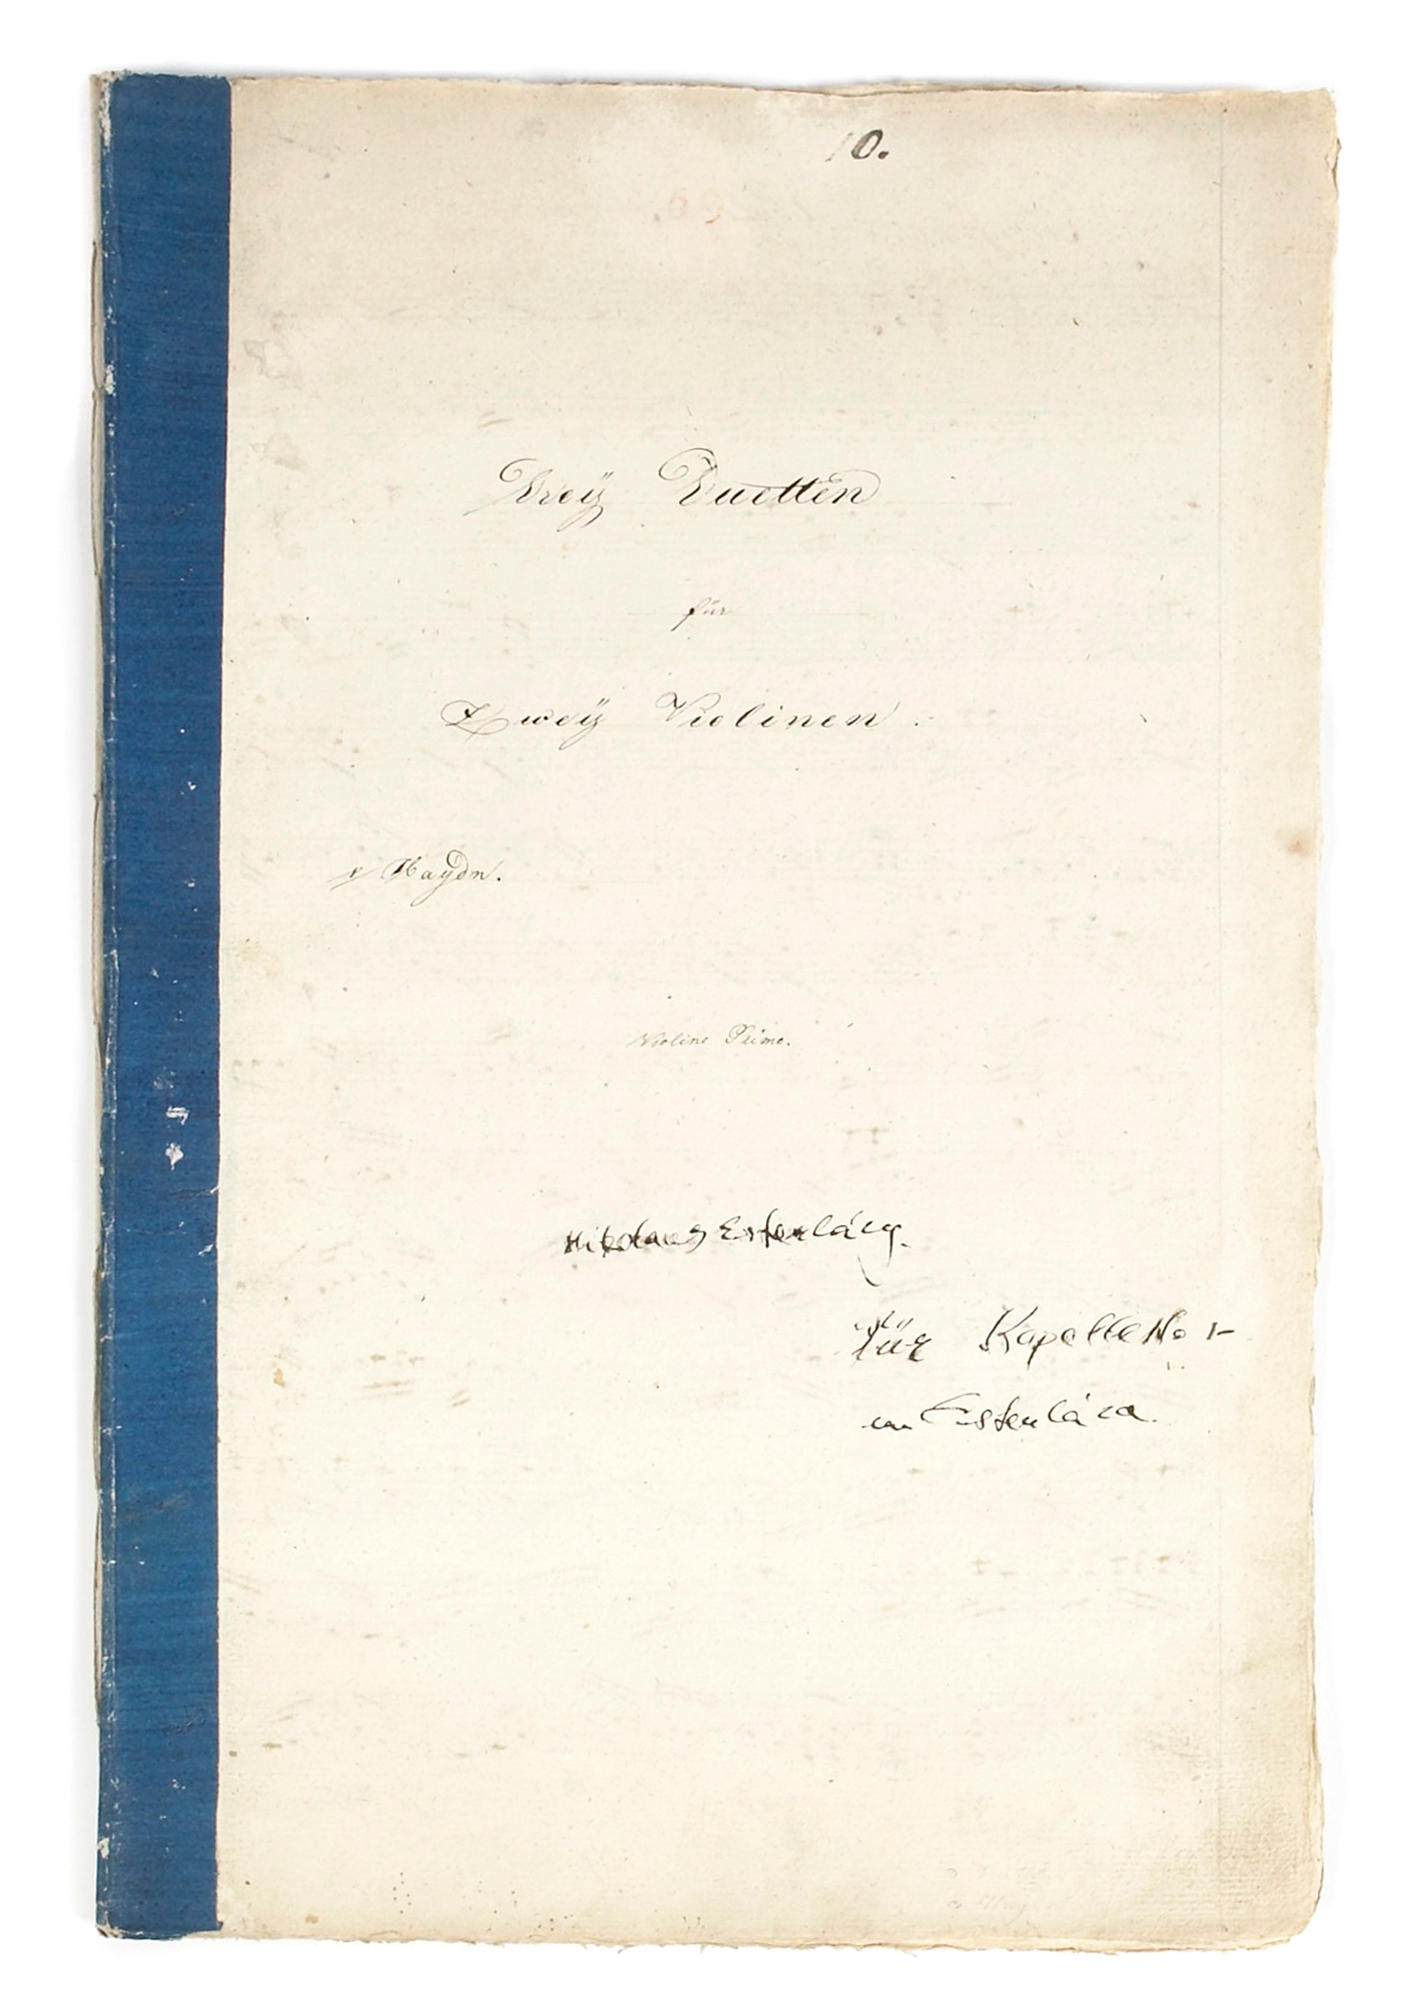 10.
Dreÿ Duetten
für
Zweÿ Violinen.
v Haydn.
Violino Primo.
Nikolaus Esterházy.
für Kapelle No 1-
Esterháza.